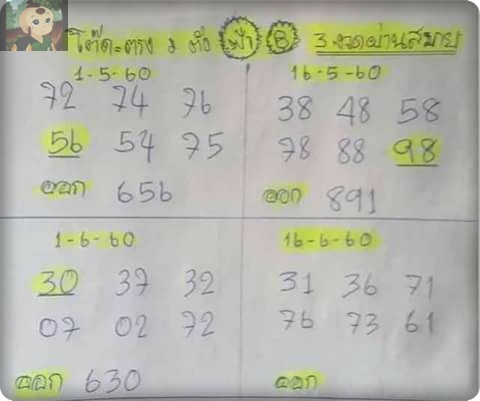 โต๊ด=ตรง 2 ตัว B 3 งวดผ่านสบาย
1-5-60
72 74 76
56 54 75
ออก 656
16-5-60
38 48 58
78 88 98
ออก 891
1-6-60
30 37 32
07 02 72
ออก 630
16-6-60
31 36 71
76 73 61
ออก